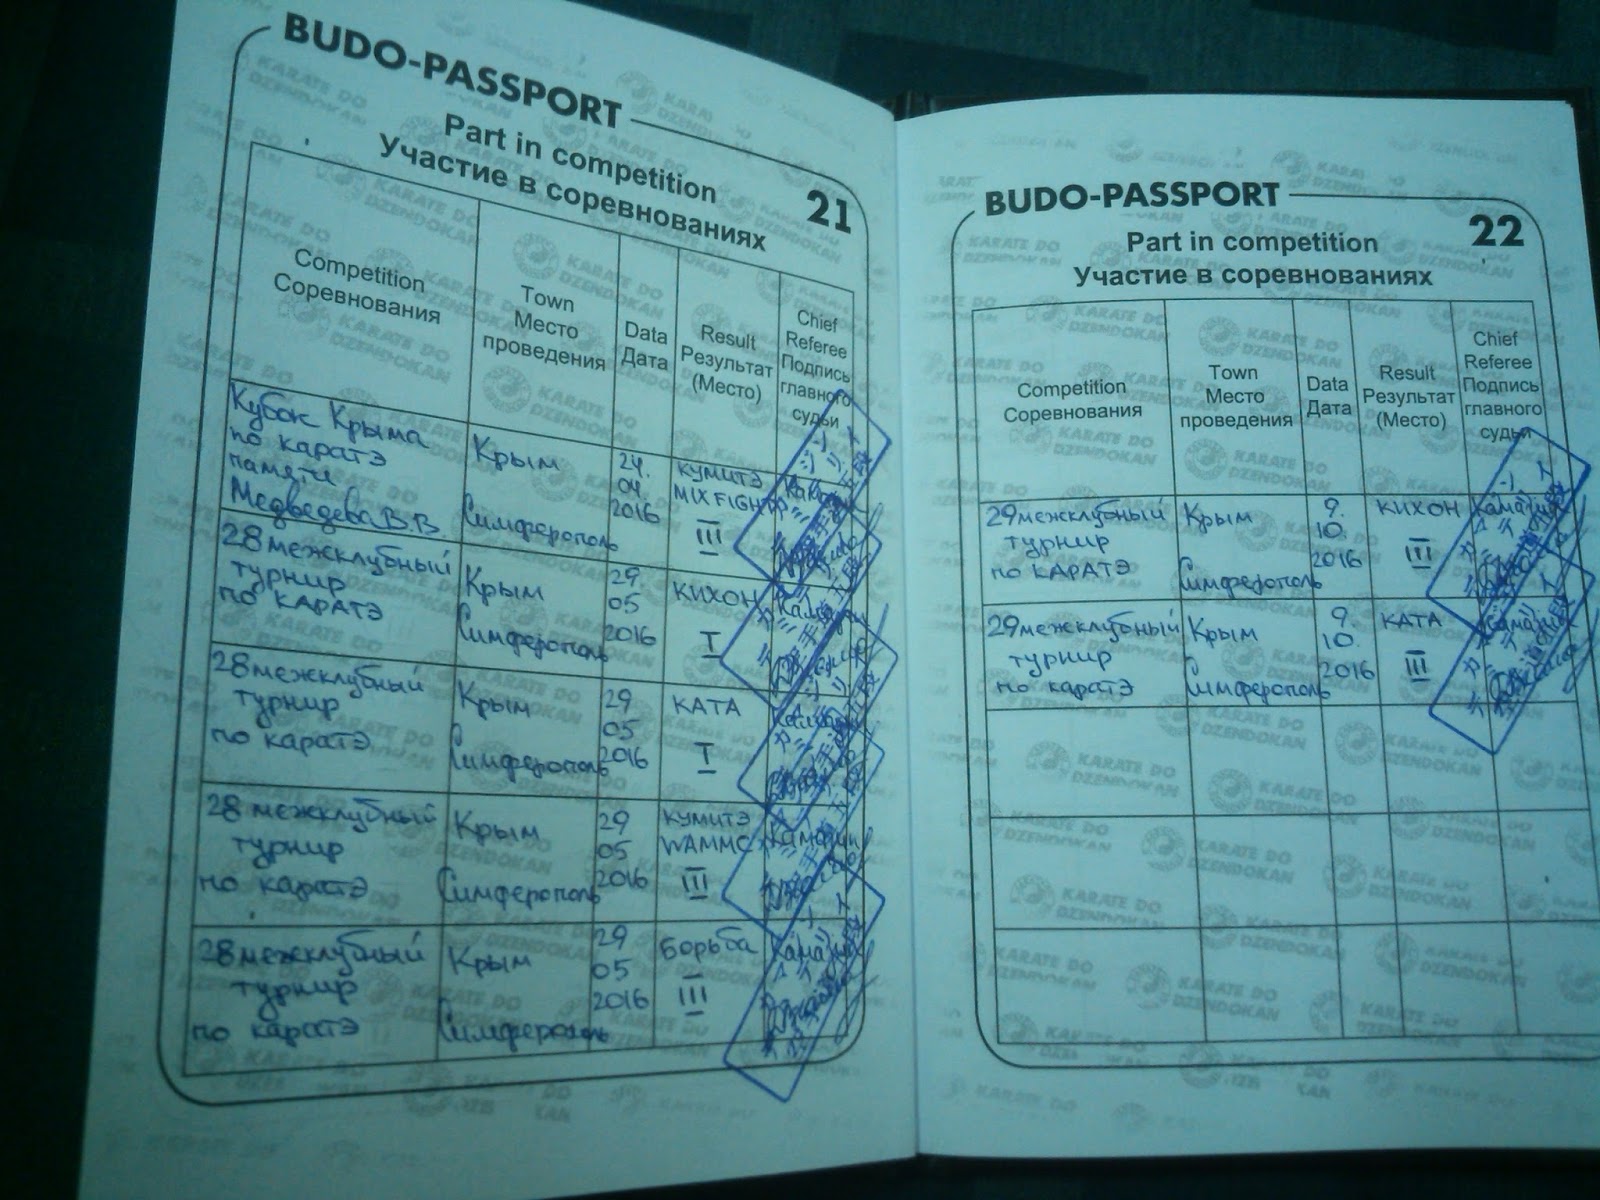 BUDO-PASSPORT
Part in competition
Участие в соревнованиях
21
Competition
Соревнования
Town
Место
проведения
Data
Дата
Result
Результат
(Место)
Chief
Referee
Подпись
главного
судьи
Кубок Крыма
по каратэ
памяти
Медведева В.В.
Крым
Симферополь
24.
04.
2016
КУМИТЭ
MIXFIGHT
III
28 межклубный
турнир
по КАРАТЭ
Крым
Симферополь
29.
05
2016
КИХОН
I
28 межклубный
турнир
по каратэ
Крым
Симферополь
29
05
2016
КАТА
I
28 межклубный
турнир
по каратэ
Крым
Симферополь
29
05
2016
КУМИТЭ
WAMMC
III
28 межклубный
турнир
по каратэ
Крым
Симферополь
29
05
2016
Борьба
III
BUDO-PASSPORT
22
Part in competition
Участие в соревнованиях
Competition
Соревнования
Town
Место
проведения
Data
Дата
Result
Результат
(Место)
Chief
Referee
Подпись
главного
судьи
29 межклубный
турнир
по КАРАТЭ
Крым
Симферополь
9.
10.
2016
КИХОН
III
29 межклубный
турнир
по каратэ
Крым
Симферополь
9.
10.
2016
КАТА
III
KARATE DO
DZENDOKAN